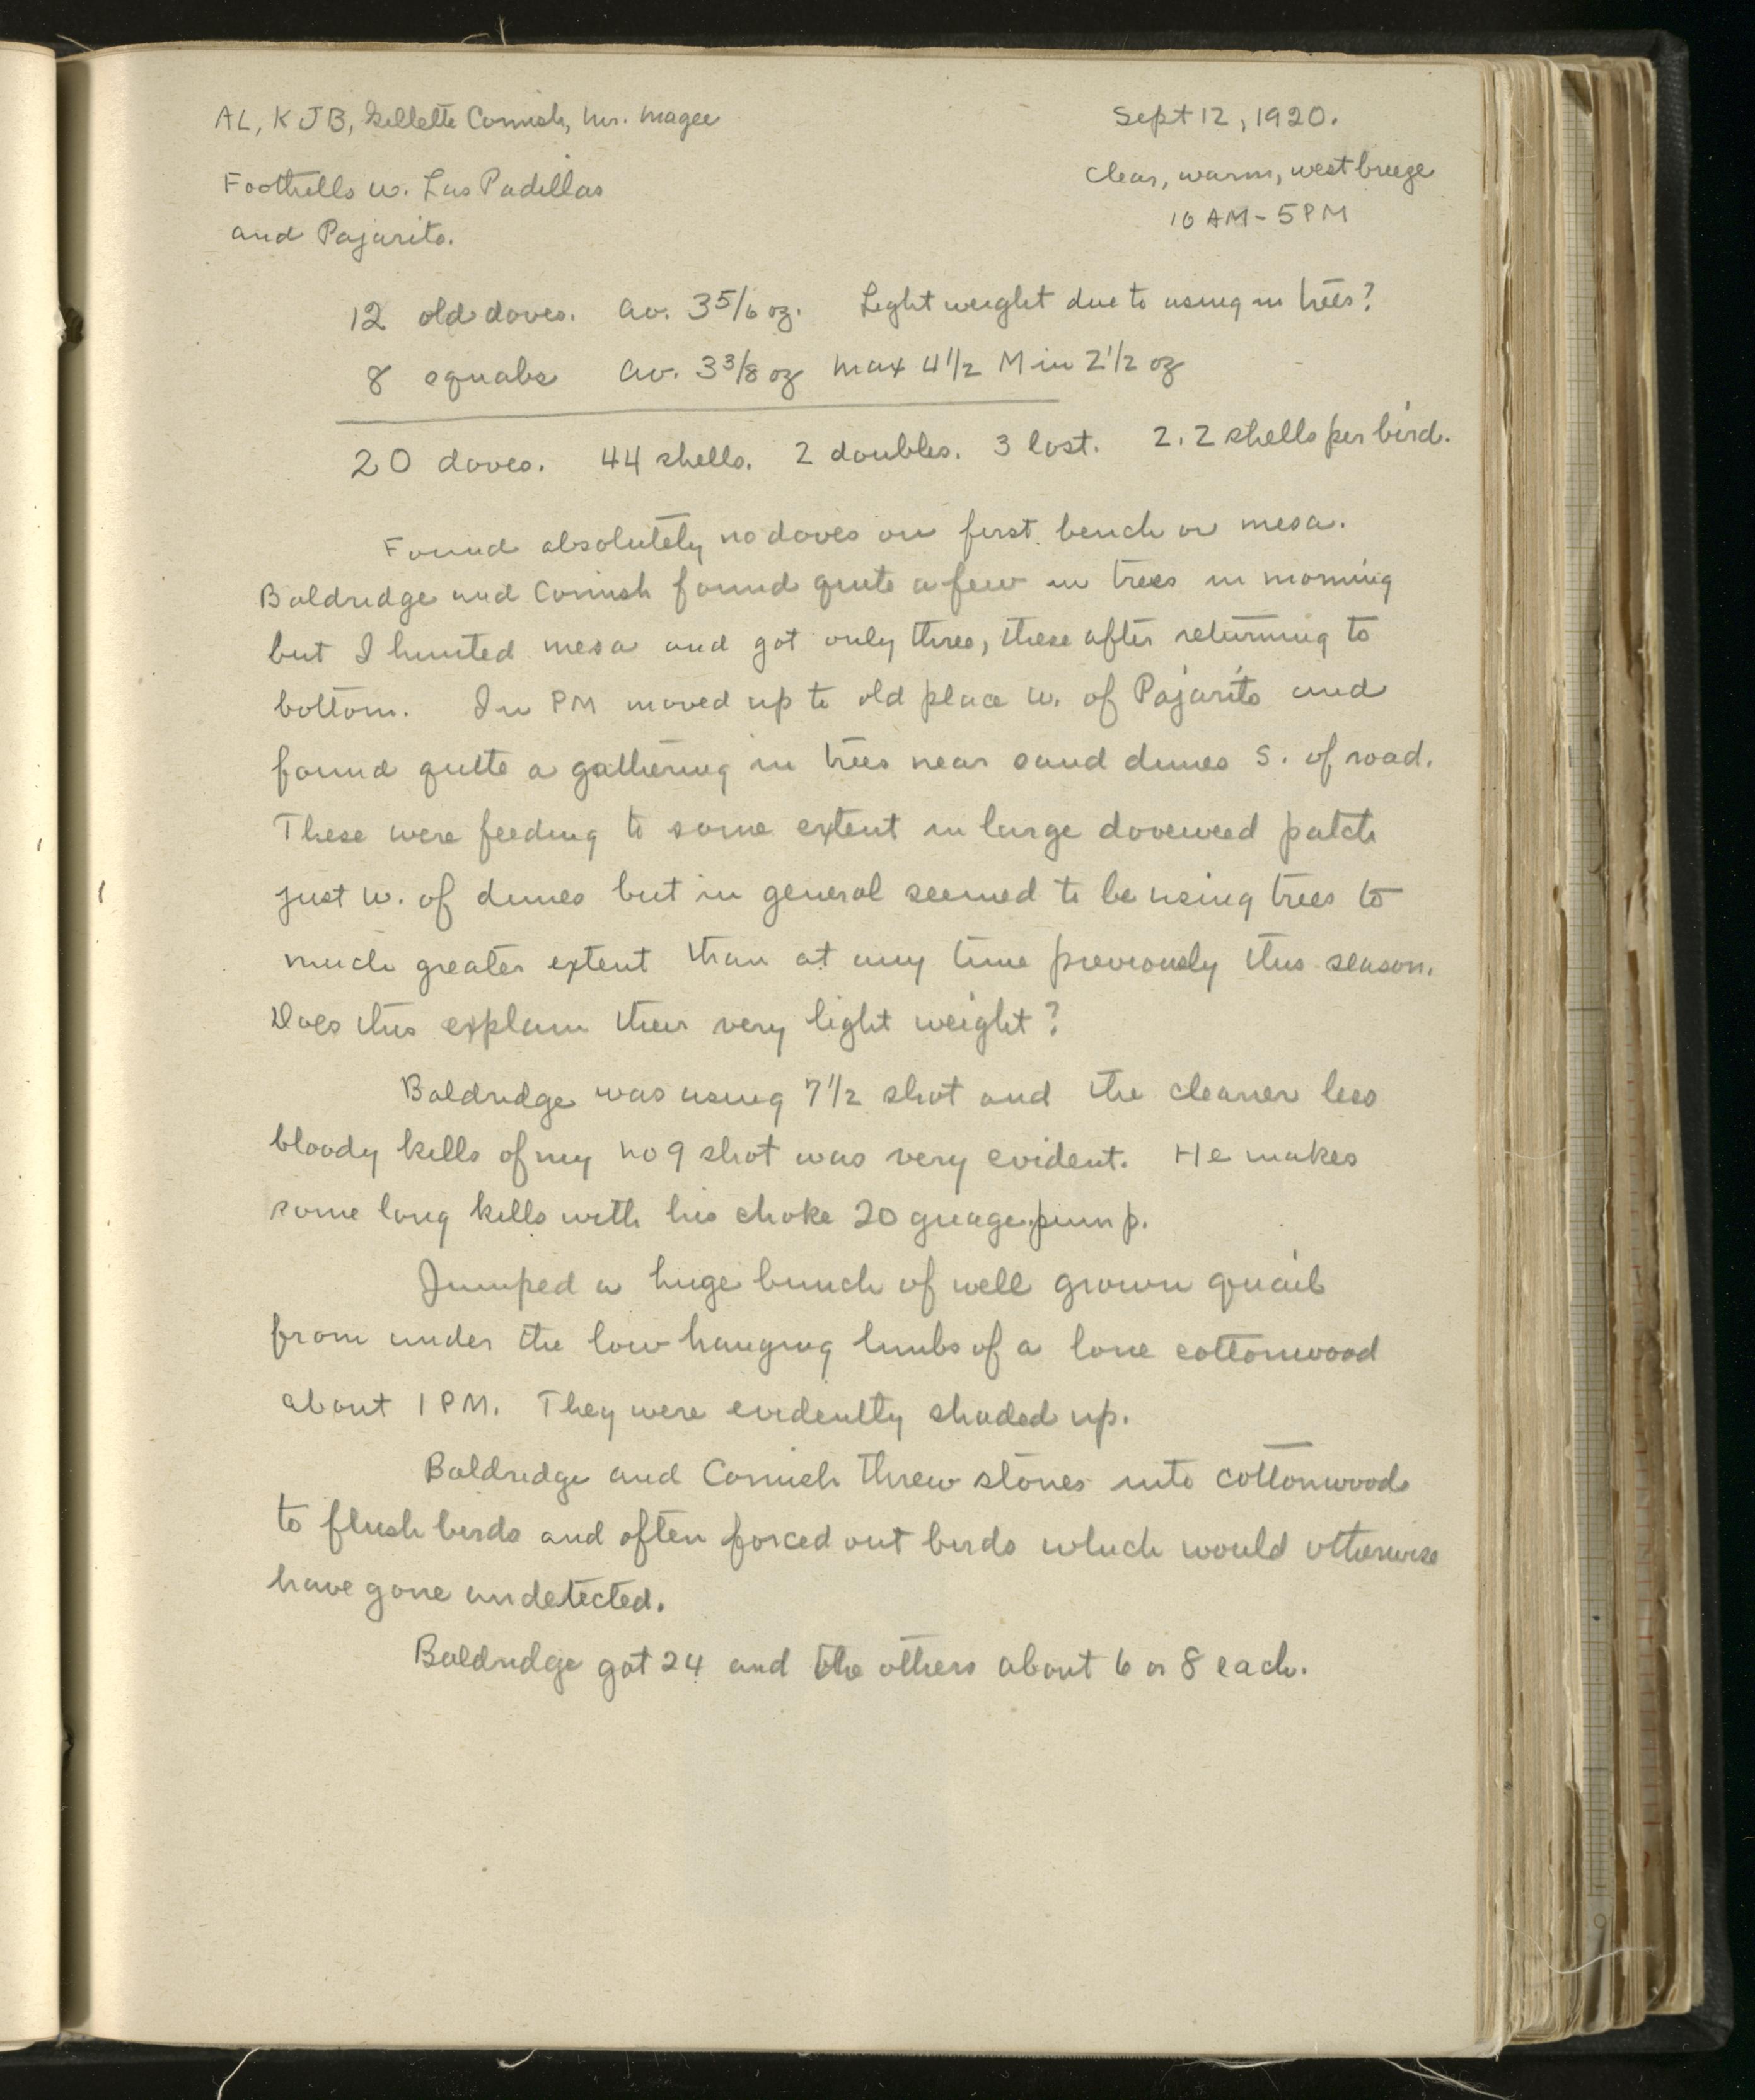 AL, KJB, Gillette Cornish, Mr. Magee
Sept 12, 1920.
Foothills w. Los Padillas
and Pajarito.
Clear, warm, west breeze
10 AM - 5 PM
12 old doves. Av. 3 5/6 oz. Light weight due to using in trees?
8 squabs Av. 3 3/8 oz Max 4 1/2 Min 2 1/2 oz
20 doves. 44 shells. 2 doubles. 3 lost. 2.2 shells per bird.
Found absolutely no doves on first bench or mesa.
Baldridge and Cornish found quite a few in trees in morning
but I hunted mesa and got only three, these after returning to
bottom. In PM moved up to old place w. of Pajarito and
found quite a gathering in trees near sand dunes S. of road.
These were feeding to some extent in large doveweed patch
just w. of dunes but in general seemed to be using trees to
much greater extent than at any time previously this season.
Does this explain their very light weight?
Baldridge was using 7 1/2 shot and the cleaner less
bloody kills of my no 9 shot was very evident. He makes
some long kills with his choke 20 guage pump.
Jumped a huge bunch of well grown quail
from under the low hanging limbs of a lone cottonwood
about 1 PM. They were evidently shaded up.
Baldridge and Cornish threw stones into cottonwoods
to flush birds and often forced out birds which would otherwise
have gone undetected.
Baldridge got 24 and the others about 6 or 8 each.